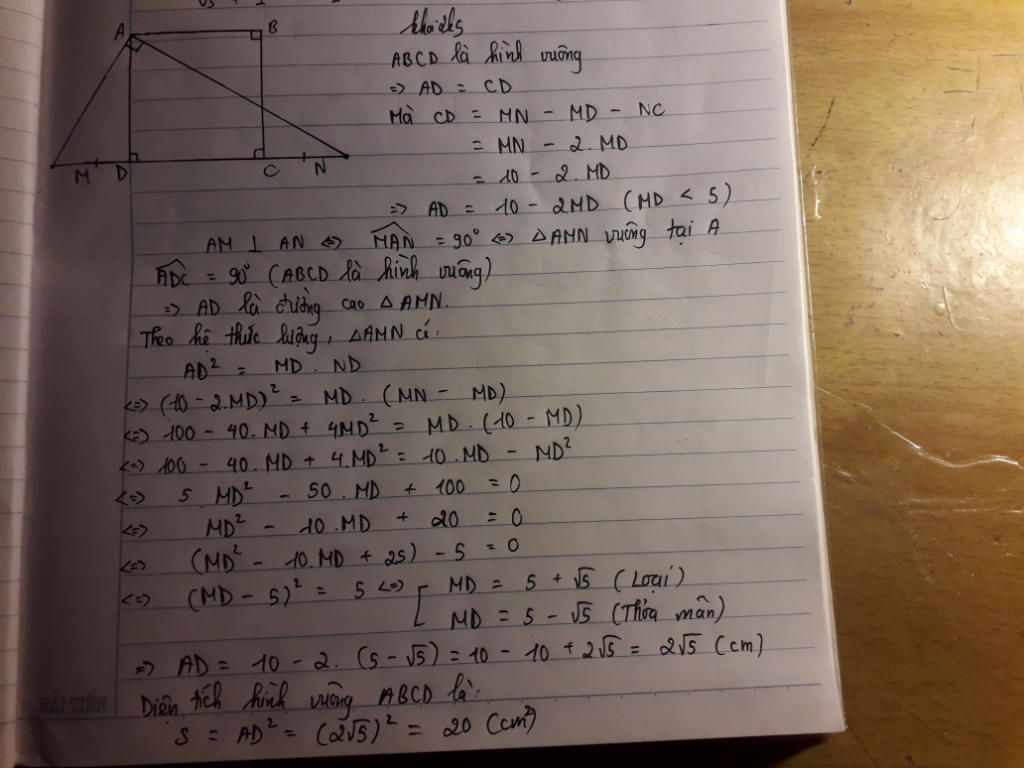 A
B
M
D
C
N
ABCD là hình vuông
=> AD = CD
Mà CD = MN - MD - NC
= MN - 2.MD
= 10 - 2.MD
=> AD = 10 - 2MD (MD < 5)
AM ⊥ AN <=> \widehat{MAN} = 90° <=> △AMN vuông tại A
\widehat{ADC} = 90° (ABCD là hình vuông)
=> AD là đường cao △AMN.
Theo hệ thức lượng, △AMN có:
AD² = MD . ND
<=> (10 - 2.MD)² = MD. (MN - MD)
<=> 100 - 40.MD + 4MD² = MD.(10 - MD)
<=> 100 - 40.MD + 4.MD² = 10.MD - MD²
<=> 5 MD² - 50.MD + 100 = 0
<=> MD² - 10.MD + 20 = 0
<=> (MD² - 10.MD + 25) - 5 = 0
<=> (MD - 5)² = 5 <=> [ MD = 5 + √5 (Loại)
MD = 5 - √5 (Thỏa mãn)
=> AD = 10 - 2. (5 - √5) = 10 - 10 + 2√5 = 2√5 (cm)
Diện tích hình vuông ABCD là:
S = AD² = (2√5)² = 20 (cm²)
HẢI TIẾN